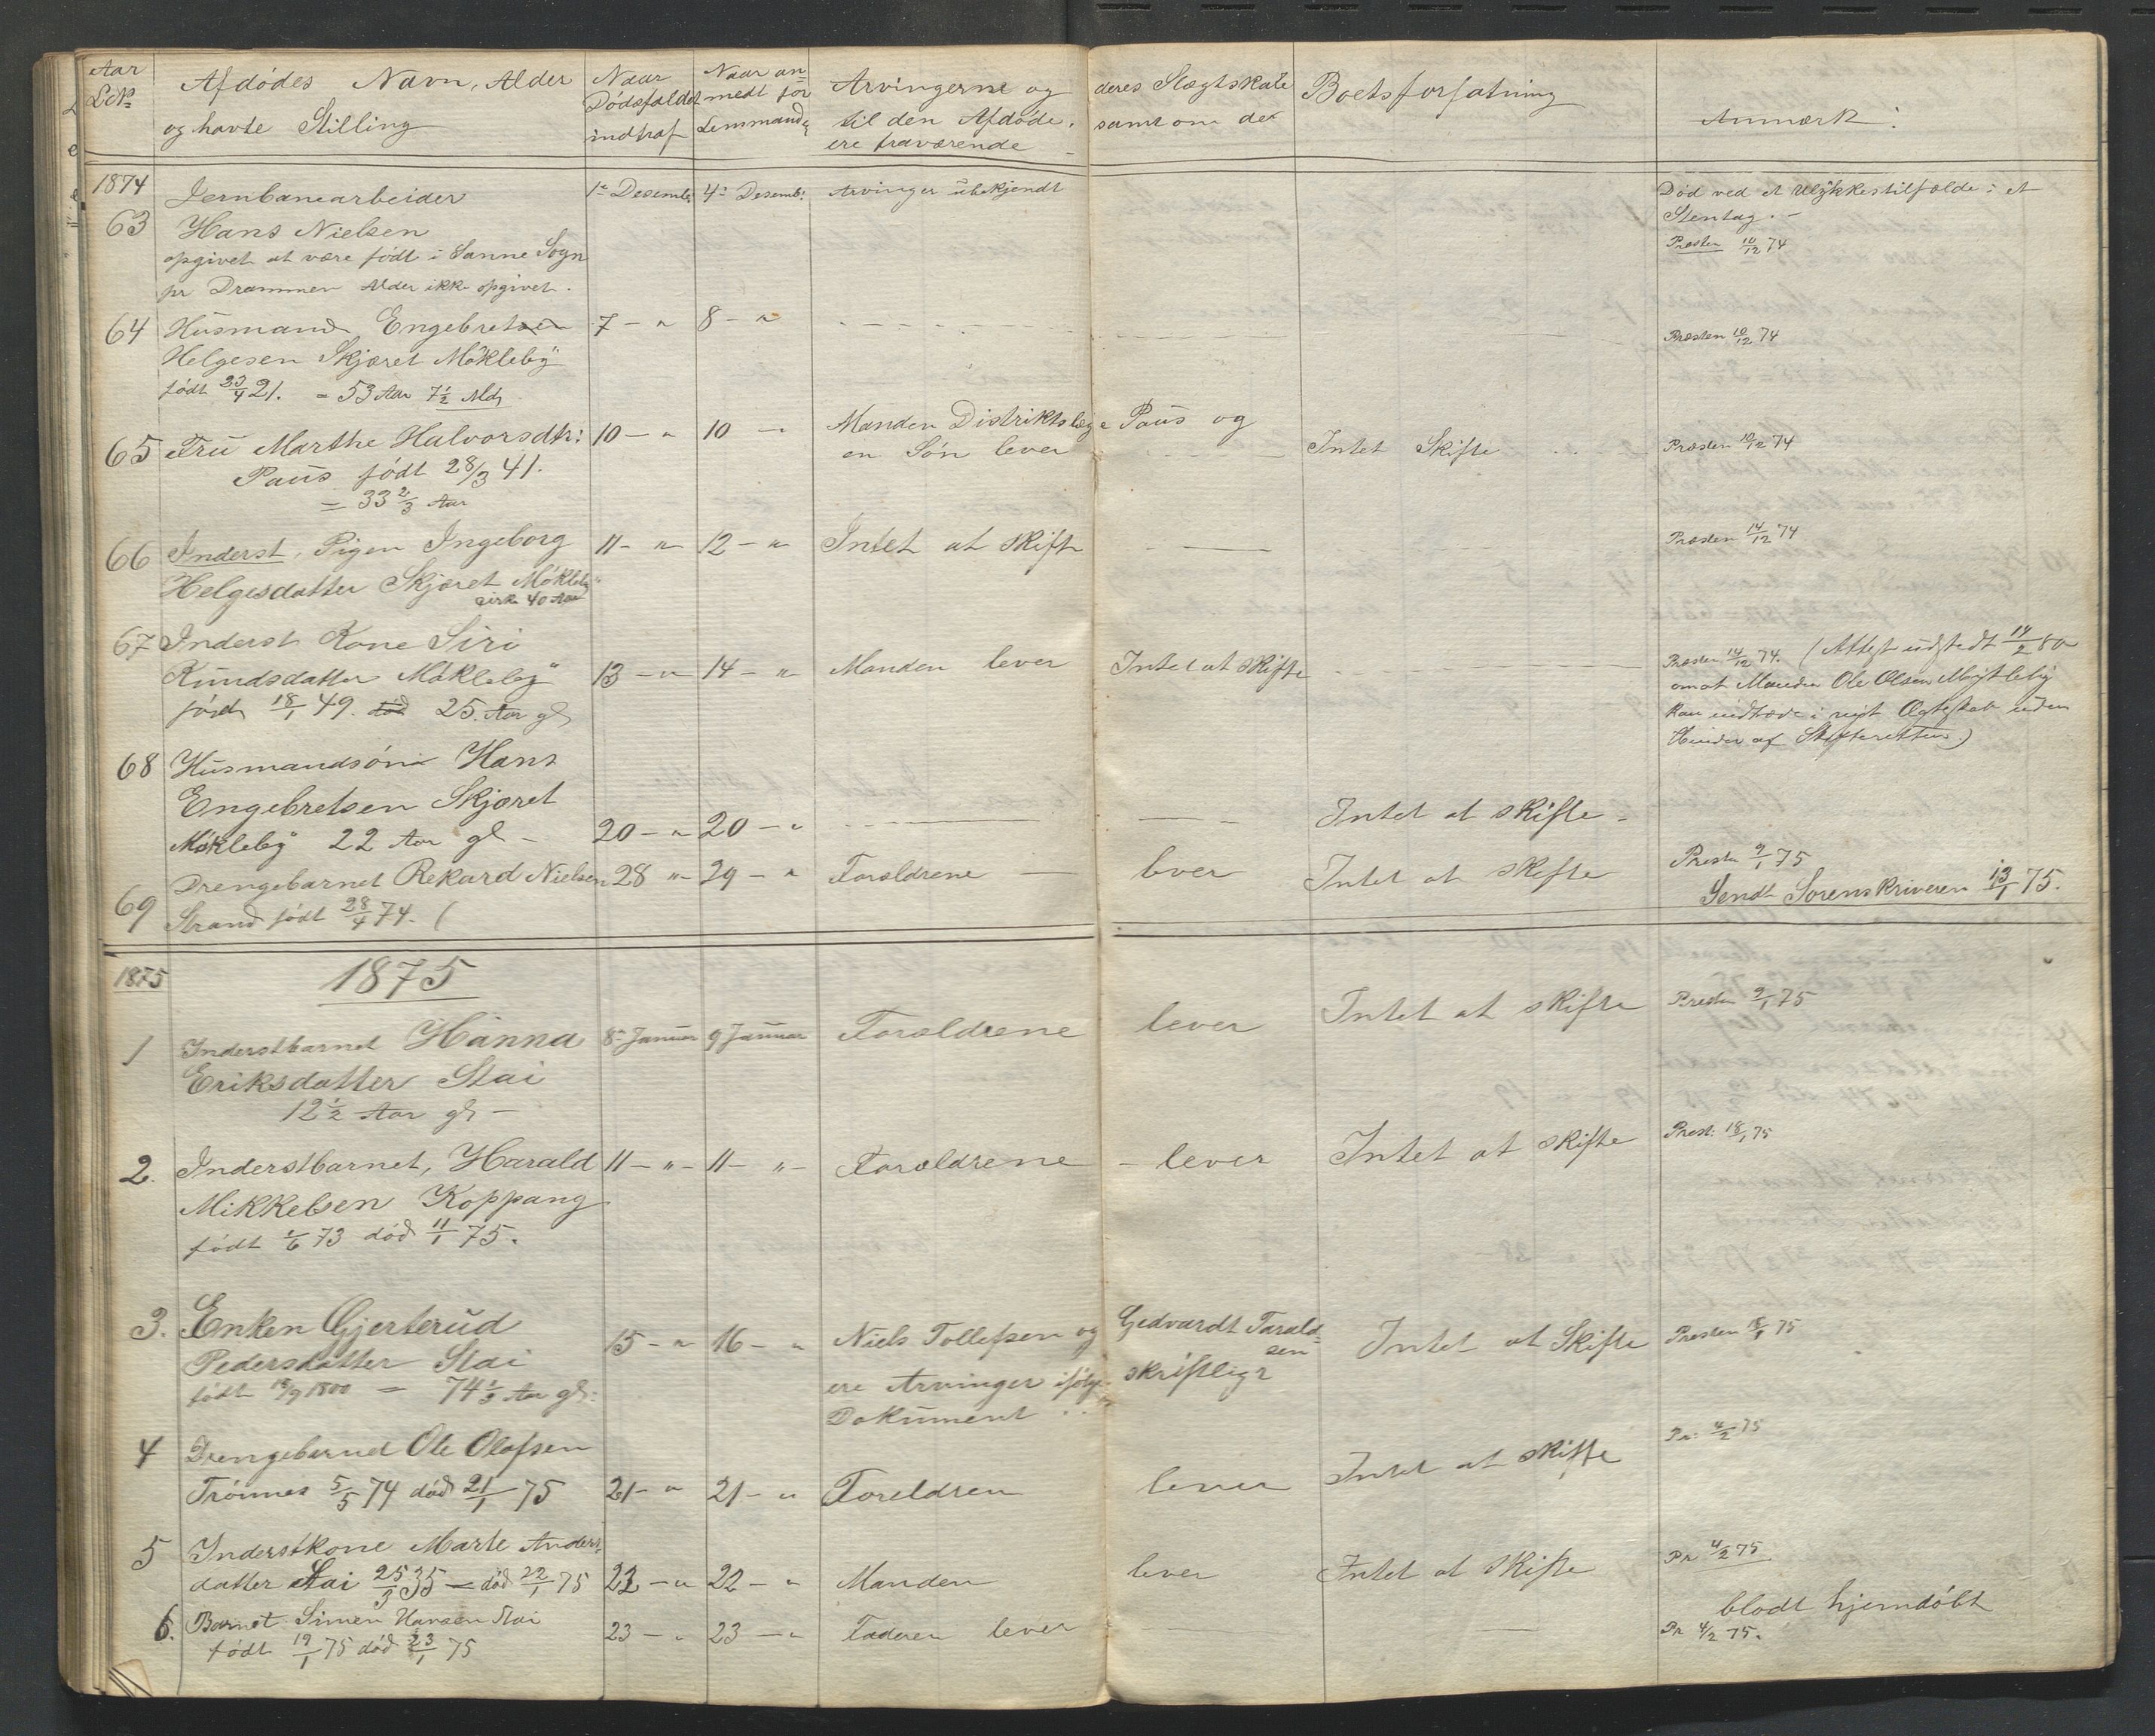 Aar
LNo
Afdödes Navn, Alder
og havte Stilling
Naar
Dödsfaldet
indtraf
Naar an-
medt for
Lensmand
Arvingerne og
til den Afdöde.
ere fraværende
deres Slægtskab
samt om de
Boets forfatning
Anmærk:
1874
63
Jernbanearbeider
Hans Nielsen
opgivet at være födt i Sanne Sogn
pr Drammen Alder ikke opgivet.
1ste Desember
4de Desemb:
Arvinger übekjendt
Död ved et Ulykkestilfælde i et
Stentag. -
Præsten 10/12 74
64
Husmand Engebretsen
Helgesen Skjæret Mökleby
födt 23/4 21. = 53 Aar 7½ Md
7 - "
8 - "
Præsten 10/12 74
65
Frü Marthe Halvorsdtr:
Paüs födt 28/3 41.
= 33 2/3 Aar
10 - "
10 - "
Manden Distriktslæge Paüs og
en Sön lever
Intet Skifte
Præsten 10/12 74
66
Inderst, Pigen Ingeborg
Helgesdatter Skjæret Mökleby
cirka 40 Aar
11 - "
12 - "
Intet at skifte
Præsten 14/12 74
67
Inderst Kone Siri
Knudsdatter Mökleby
född 18/1 49. död 25. Aar gl
13 - "
14 - "
Manden lever
Intet at skifte
Præsten 14/12 74. (Attest udstedt 14/2 80
om at Manden Ole Olsen Mykleby
kan indtræde i nyt Ægteskab uden
Hinder af Skifteretten.)
68
Husmandsön Hans
Engebretsen Skjæret
Mökleby 22 Aar gl -
20 - "
20 - "
Intet at skifte -
69
Drengebarnet Rekard Nielsen
Strand födt 28/4 74. (
28 "
29 - "
Forældrene - lever
Intet at skifte
Presten 9/1 75
Sendt Sorenskriveren 13/1 75.
1875
1875
1
Inderstbarnet Hanna
Eriksdatter Stai
12½ Aar gl -
8de Januar
9 Januar
Forældrene
lever
Intet at skifte
Presten 9/1 75
2.
Inderstbarnet, Harald
Mikkelsen Koppang
födt 1/6 73 död 11/1 75.
11 - " -
11 - " -
Forældrene
- lever
Intet at skifte
Prest: 18/1 75
3.
Enken Gjerterud
Pedersdatter Stai
födt 18/9 1800 = 74 1/3 Aar gl:
15 - "
16 - "
Niels Tollefsen og Gedvardt Tarald-
sen
ere Arvinger ifölge skriftligt
Dokument
Intet at Skifte
Presten 18/1 75
4
Drengebarnet Ole Olofsen
Trönnes 5/5 74 död 21/1 75
21 - "
21 - "
Foreldren
lever
Intet at skifte
Pr: 4/2 75
5
Inderstkone Marte Anders-
datter Stai 25/3 35 - död 22/1 75
22 - "
22 - "
Manden
lever
Intet at skifte
Pr 4/2 75
6.
Barnet Simen Hansen Stai
födt 19/1 75 död 23/1 75
23 - "
23 - "
Faderen lever
blodt hjemdöbt
Pr 4/2 75.